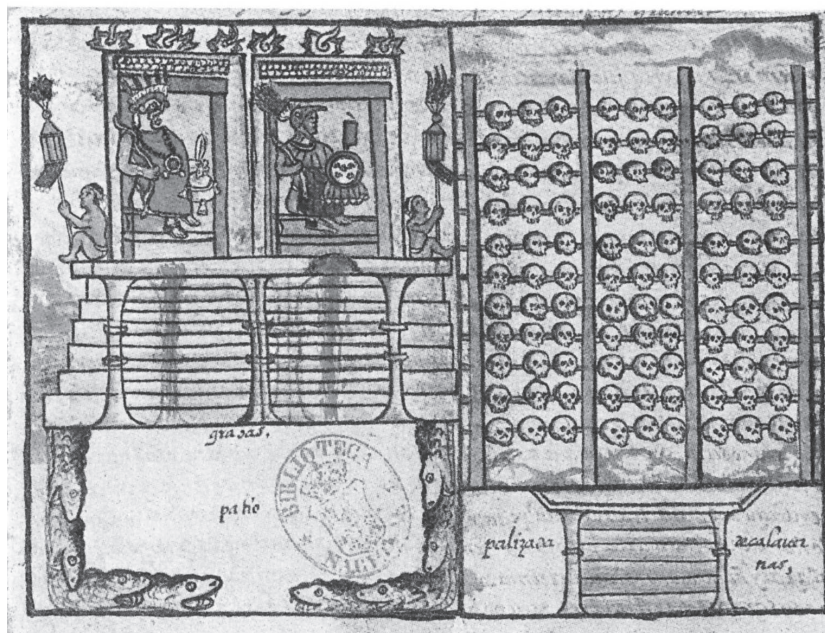 gradas,
patio
BIBLIOTECA
NACIONAL
palizada
de calauer
nas,